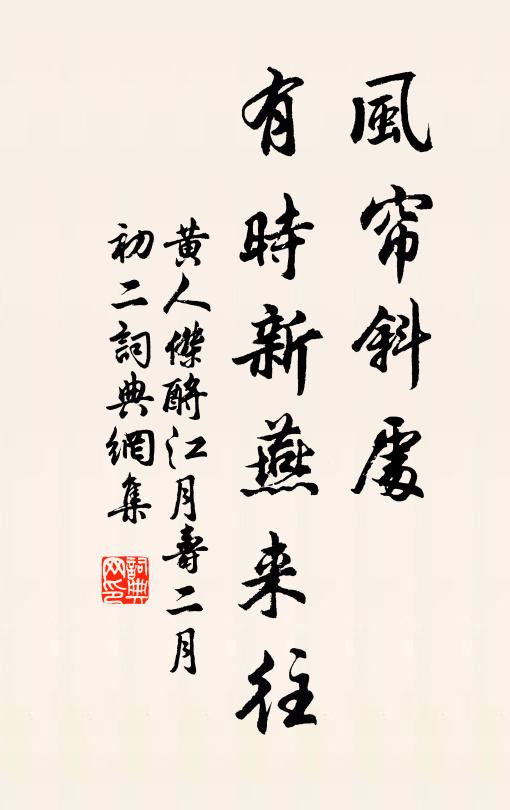 風帘斜處
有時新燕来往
黄人傑酹江月壽二月
初二詞典網集
詞典网印